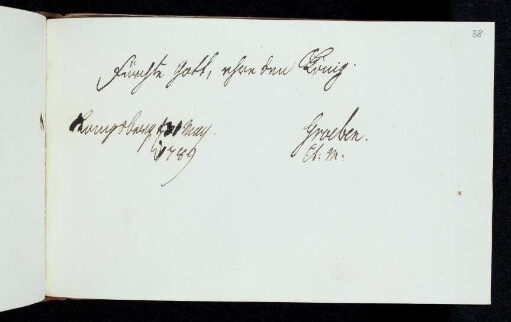 38
Fürchte Gott, ehre den König.
Koenigsberg May.
1789
Groeben.